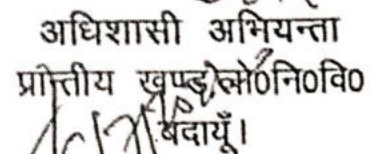 अधिशासी अभियन्ता
प्रान्तीय खण्ड, लो०नि०वि०
बदायूँ।